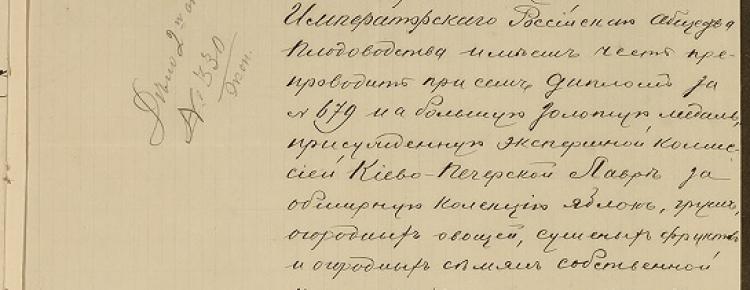 Дѣло 2го ст
№ 330
Экон.
Императорскаго Россійскаго общества
Плодоводства имѣетъ честь пре-
проводить при семъ дипломъ за
№ 679 на большую золотую медаль,
присужденную экспертной комис-
сіей Кіево-Печерской Лаврѣ за
обширную колекцію яблокъ, грушъ,
огородныхъ овощей, сушеныхъ фруктовъ
и огородныхъ сѣмянъ собственной